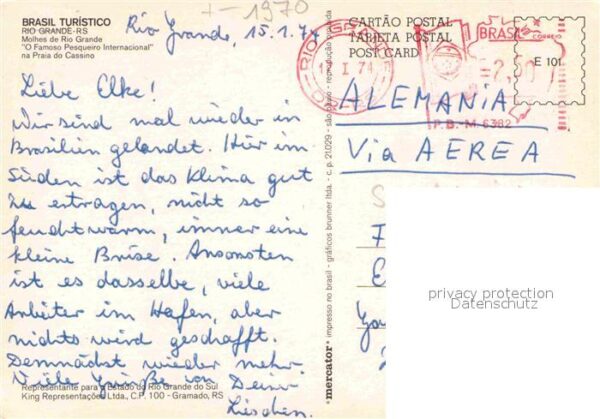 +-1970
BRASIL TURÍSTICO
RIO GRANDE-RS
Molhes de Rio Grande
"O Famoso Pesqueiro Internacional"
na Praia do Cassino
Rio Grande, 15.1.74
Liebe Elke!
Wir sind mal wieder in
Brasilien gelandet. Hier im
Süden ist das Klima gut
zu ertragen, nicht so
feuchtwarm, immer eine
kleine Brise. Ansonsten
ist es dasselbe, viele
Arbeiter im Hafen, aber
nichts wird geschafft.
Demnächst wieder mehr.
Viele Grüße von Dein
Lieschen.
Representante para o Estado do Rio Grande do Sul
King Representações Ltda., C.P. 100 - Gramado, RS
"mercator" impresso no brasil - gráficos brunner ltda. - c. p. 21.029 - são paulo - reprodução proibida
CARTÃO POSTAL
TARJETA POSTAL
POST CARD
I 74
BRASIL
CORREIO
E 101
P.B.-M 6382
ALEMANIA
Via AEREA
privacy protection
Datenschutz